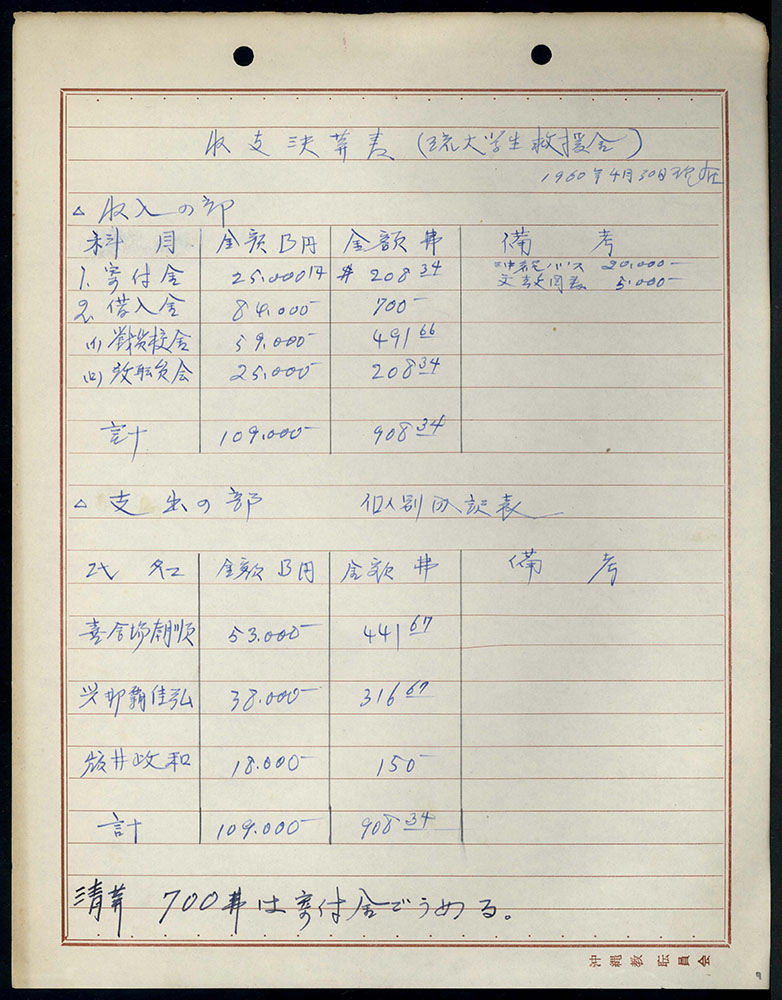 収支決算表(琉大学生救援会)
1960年4月30日現在
△ 収入の部
科目 金額B円 金額弗 備考
1. 寄付金 25.000円 $ 208 34 沖縄バス 20.000-
文教図書 5.000-
2. 借入金 84.000- 700-
(イ) 59.000- 491 66
(ロ) 教職員会 25.000- 208 34
計 109.000- 908 34
△ 支出の部 個人別内訳表
氏名 金額B円 金額弗 備考
喜舎場朝順 53.000- 441 67
与那覇佳弘 38.000- 316 67
政和 18.000- 150-
計 109.000- 908 34
清算 700弗は寄付金でうめる。
沖縄教職員会